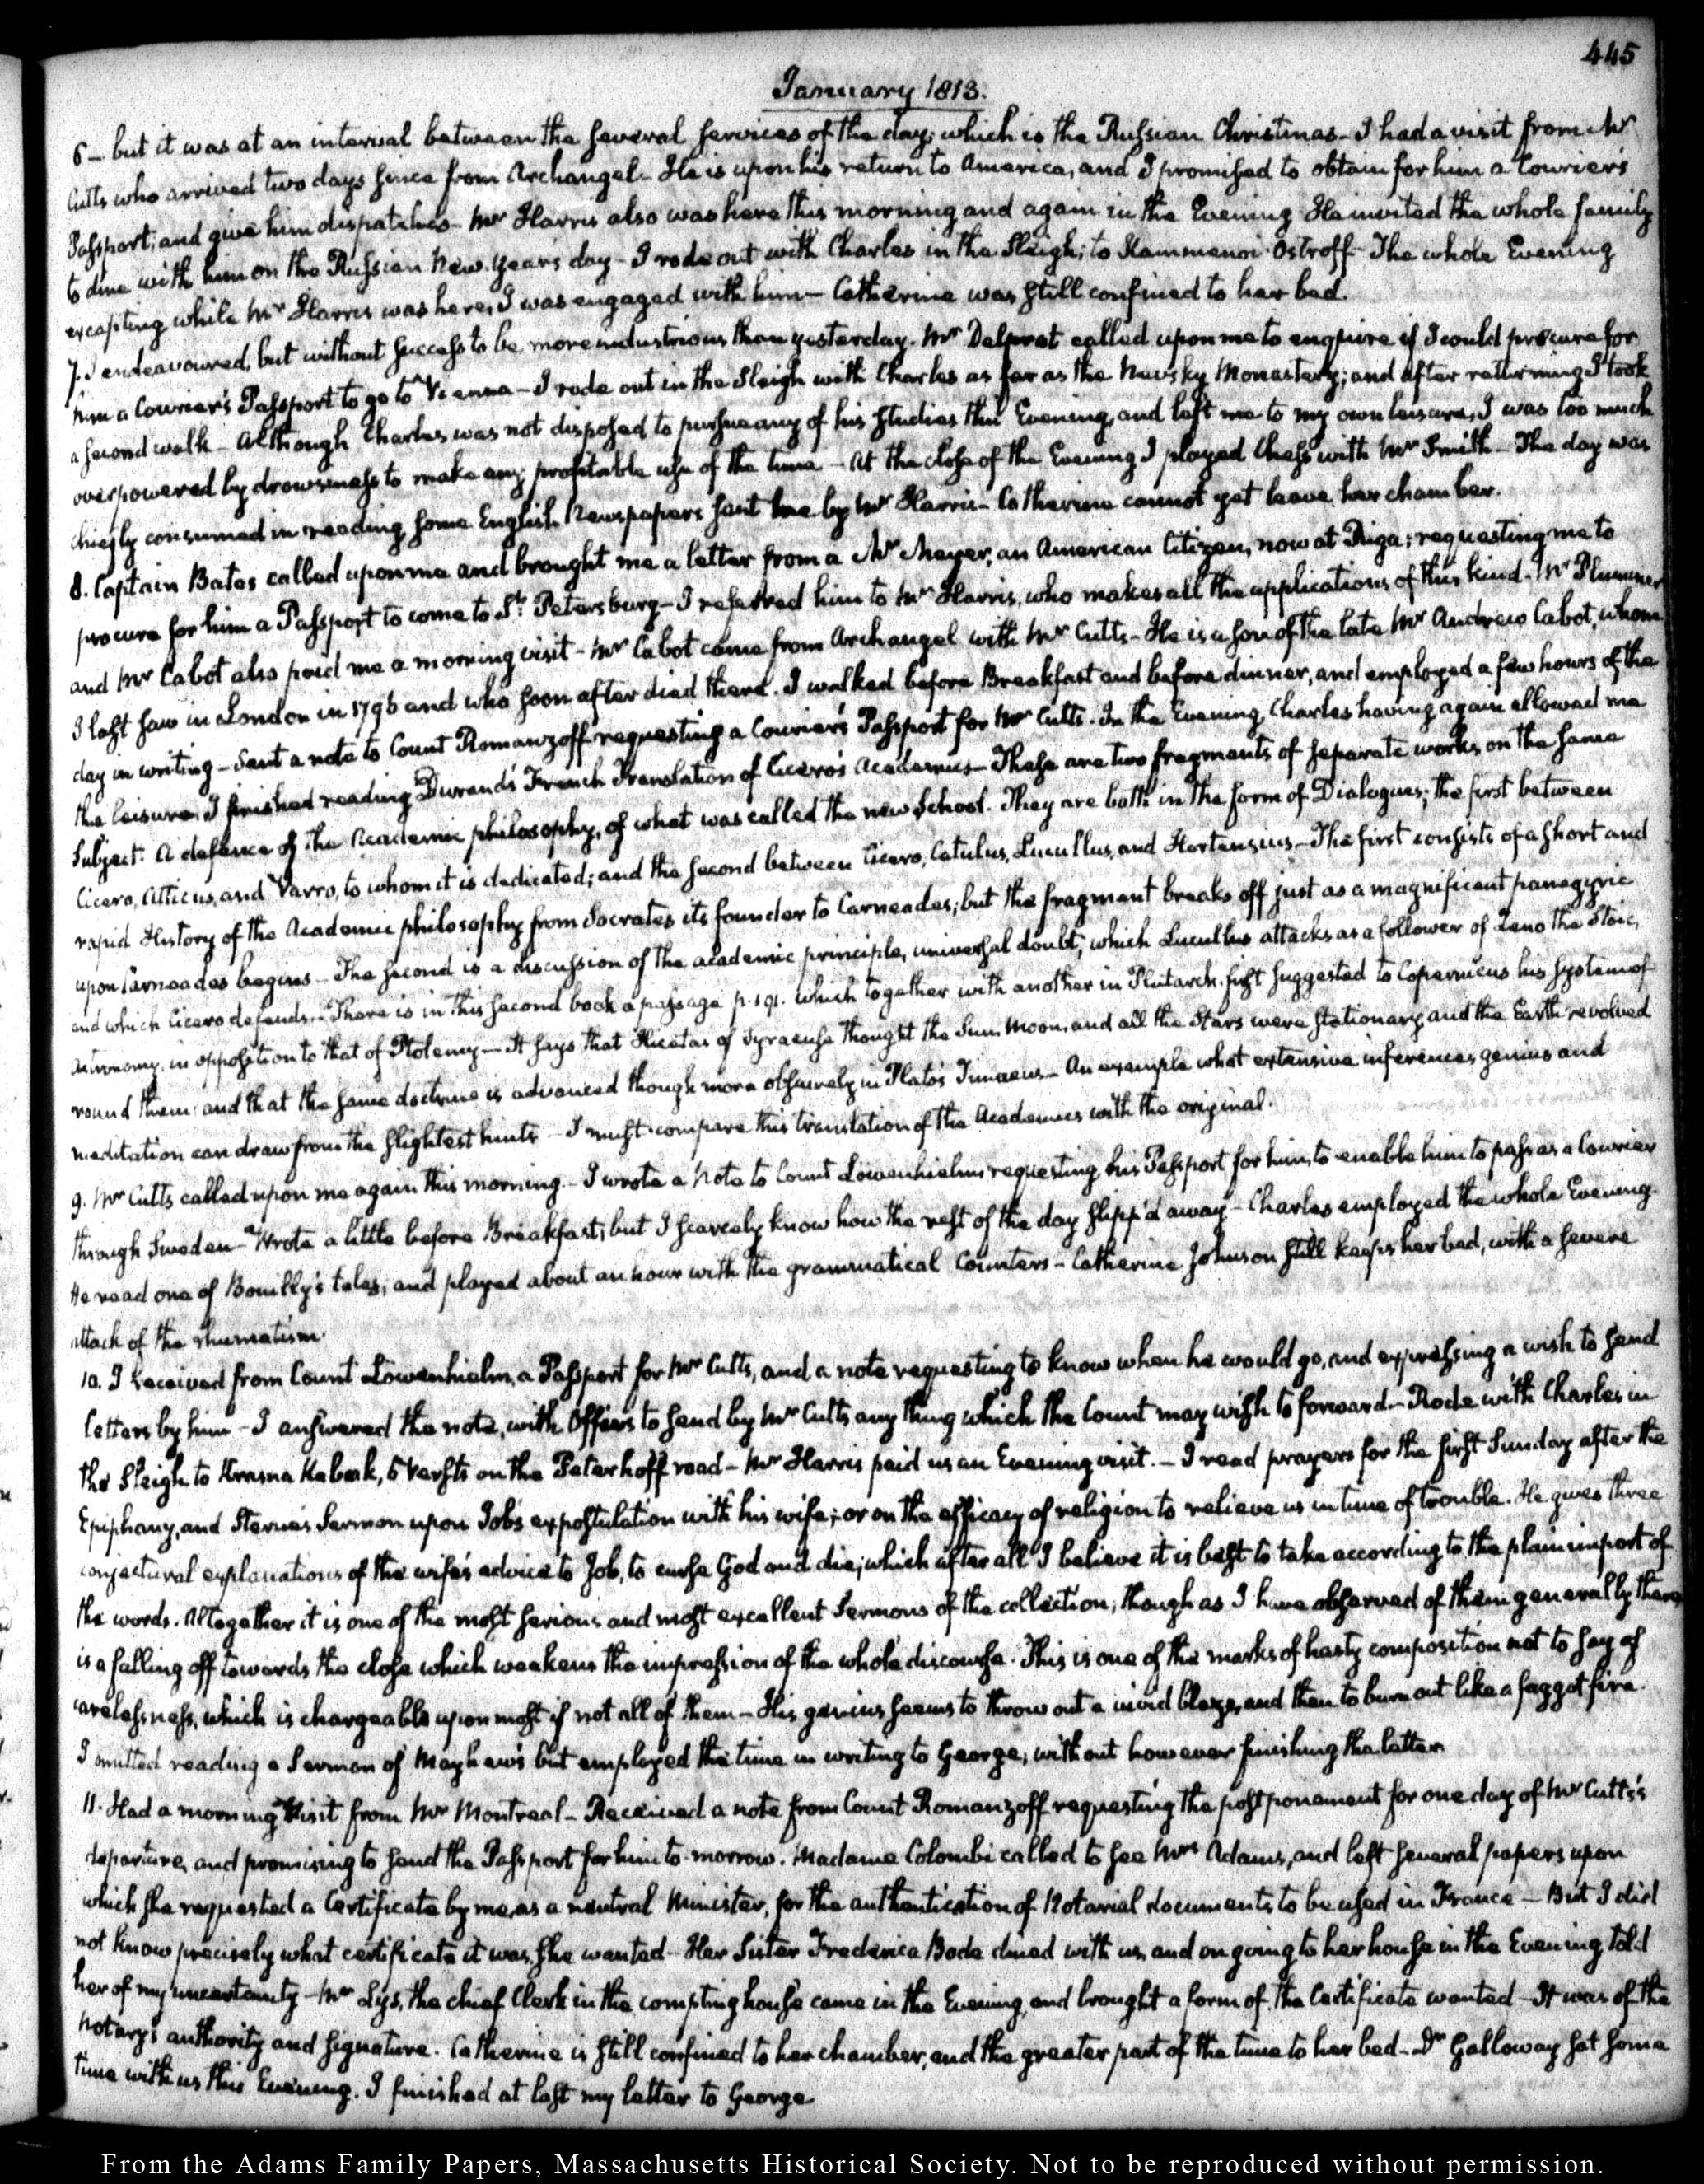 445
January 1813.
6 – but it was at an interval between the several services of the day; which is the Russian Christmas – I had a visit from Mr
Cutts who arrived two days since from Archangel – He is upon his return to America, and I promised to obtain for him a Courier's
Passport; and give him dispatches – Mr Harris also was here this morning and again in the Evening He invited the whole family
to dine with him on the Russian New-Year's day – I rode out with Charles in the Sleigh; to Kammenoi-Ostroff – The whole Evening
excepting while Mr Harris was here, I was engaged with him – Catherine was still confined to her bed.
7. I endeavoured, but without success to be more industrious than yesterday. Mr Delprat called upon me to enquire if I could procure for
him a Courier's Passport to go to Vienna – I rode out in the Sleigh with Charles as far as the Nevsky Monastery; and after returning I took
a second walk – Although Charles was not disposed to pursue any of his studies this Evening, and left me to my own leisure, I was too much
overpowered by drowsiness to make any profitable use of the time – At the close of the Evening I played Chess with Mr Smith – The day was
chiefly consumed in reading some English Newspapers sent me by Mr Harris – Catherine cannot yet leave her chamber.
8. Captain Bates called upon me and brought me a letter from a Mr Meyer, an American Citizen, now at Riga; requesting me to
procure for him a Passport to come to St. Petersburg – I referred him to Mr Harris, who makes all the applications of this kind – Mr Plummer
and Mr Cabot also paid me a morning visit – Mr Cabot came from Archangel with Mr Cutts – He is a son of the late Mr Andrew Cabot, whom
I last saw in London in 1796 and who soon after died there. I walked before Breakfast and before dinner, and employed a few hours of the
day in writing – Sent a note to Count Romanzoff requesting a Courier's Passport for Mr Cutts. In the Evening, Charles having again allowed me
the leisure, I finished reading Durand's French Translation of Cicero's Academics – These are two fragments of separate works on the same
subject: A defence of the Academic philosophy, of what was called the new School. They are both in the form of Dialogues; the first between
Cicero, Atticus, and Varro, to whom it is dedicated; and the second between Cicero, Catulus, Lucullus, and Hortensius – The first consists of a short and
rapid History of the Academic philosophy from Socrates its founder to Carneades; but the fragment breaks off just as a magnificent panegyric
upon Carneades begins – The second is a discussion of the academic principle, universal doubt; which Lucullus attacks as a follower of Zeno the Stoic,
and which Cicero defends. There is in this second book a passage p. 191. which together with another in Plutarch first suggested to Copernicus his system of
Astronomy, in opposition to that of Ptolemy – It says that Hicetas of Syracuse thought the Sun, Moon, and all the Stars were stationary and the Earth revolved
round them: and that the same doctrine is advanced though more obscurely in Plato's Timaeus – An example what extensive inferences genius and
meditation can draw from the slightest hints – I must compare this translation of the Academics with the original.
9. Mr Cutts called upon me again this morning – I wrote a Note to Count Löwenhielm requesting his Passport for him, to enable him to pass as a Courier
through Sweden – Wrote a little before Breakfast; but I scarcely know how the rest of the day slipp'd away – Charles employed the whole Evening.
He read one of Bouilly's tales; and played about an hour with the grammatical Counters – Catherine Johnson still keeps her bed, with a severe
attack of the rhumatism.
10. I received from Count Löwenhielm, a Passport for Mr Cutts, and a note requesting to know when he would go, and expressing a wish to send
letters by him – I answered the note, with Offers to send by Mr Cutts any thing which the Count may wish to forward – Rode with Charles in
the Sleigh to Krasna Kabak, 5 Versts on the Peterhoff road – Mr Harris paid us an Evening visit. – I read prayers for the first Sunday after the
Epiphany, and Sterne's Sermon upon Job's expostulation with his wife; or on the efficacy of religion to relieve us in time of trouble. He gives three
conjectural explanations of the wife's advice to Job, to curse God and die; which after all I believe it is best to take according to the plain import of
the words. Altogether it is one of the most serious and most excellent Sermons of the collection; though as I have observed of them generally there
is a falling off towards the close which weakens the impression of the whole discourse. This is one of the marks of hasty composition not to say of
carelessness, which is chargeable upon most if not all of them – His genius seems to throw out a vivid blaze, and then to burn out like a faggot fire.
I omitted reading a Sermon of Mayhew's but employed the time in writing to George; without however finishing the letter.
11. Had a morning Visit from Mr Montreal – Received a note from Count Romanzoff requesting the postponement for one day of Mr Cutts's
departure, and promising to send the Passport for him to-morrow. Madame Colombi called to see Mrs Adams, and left several papers upon
which she requested a Certificate by me, as a neutral Minister, for the authentication of Notarial documents to be used in France – But I did
not know precisely what certificate it was she wanted – Her Sister Frederica Bode dined with us, and on going to her house in the Evening told
her of my uncertainty – Mr Lys, the chief Clerk in the compting house came in the Evening, and brought a form of the Certificate wanted – It was of the
Notary's authority and signature. Catherine is still confined to her chamber, and the greater part of the time to her bed – Dr Galloway sat some
time with us this Evening. I finished at last my letter to George
From the Adams Family Papers, Massachusetts Historical Society. Not to be reproduced without permission.